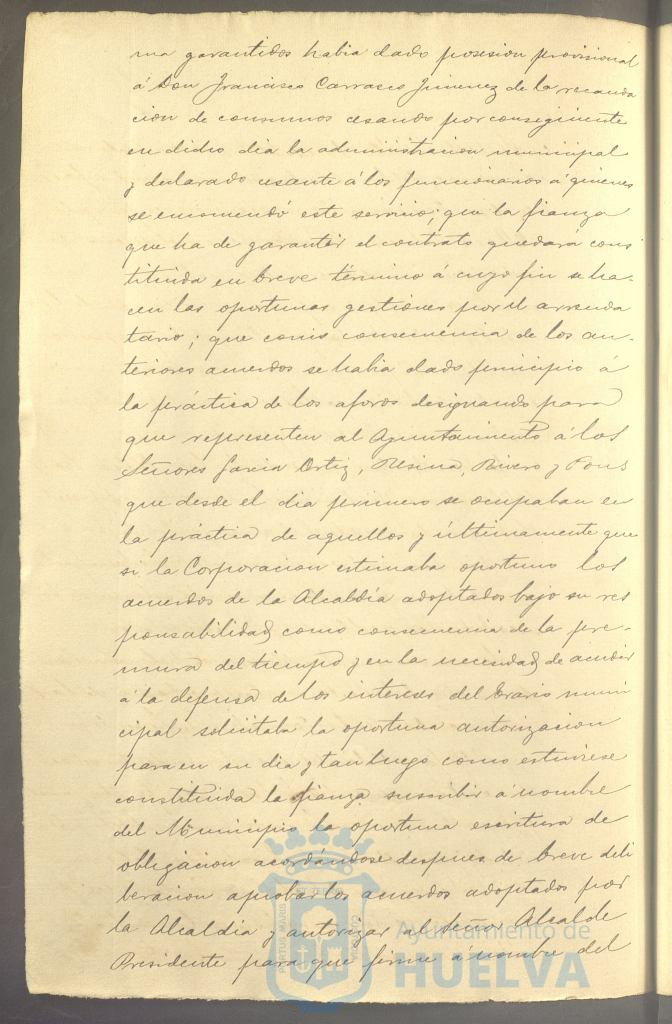 ma garantidos habia dado posesion provisional
á Don Francisco Carrasco Jimenez de la recauda
cion de consumos cesando por conseguinte
en dicho dia la administracion municipal
y declarado cesante á los funcionarios á quienes
se encomendó este servicio; que la fianza
que ha de garantir el contrato quedará cons
tituida en breve término á cuyo fin se ha-
cen las oportunas gestiones por el arrenda
tario; que como consecuencia de los an-
teriores acuerdos se habia dado principio á
la práctica de los aforos designando para
que representen al Ayuntamiento á los
Señores Garcia Ortiz, Resina, Rivero y Pons
que desde el dia primero se ocupaban en
la práctica de aquellos y últimamente que
si la Corporacion estimaba oportuno los
acuerdos de la Alcaldía adoptados bajo su res
ponsabilidad como consecuencia de la pre-
mura del tiempo y en la necesidad de acudir
á la defensa de los intereses del Erario muni
cipal solicitaba la oportuna autorizacion
para en su dia y tan luego como estuviese
constituida la fianza suscribir á nombre
del Municipio la oportuna escritura de
obligacion acordándose despues de breve deli
beracion aprobar los acuerdos adoptados por
la Alcaldia y autorizar al Señor Alcalde
Presidente para que firme á nombre del
Ayuntamiento de
HUELVA